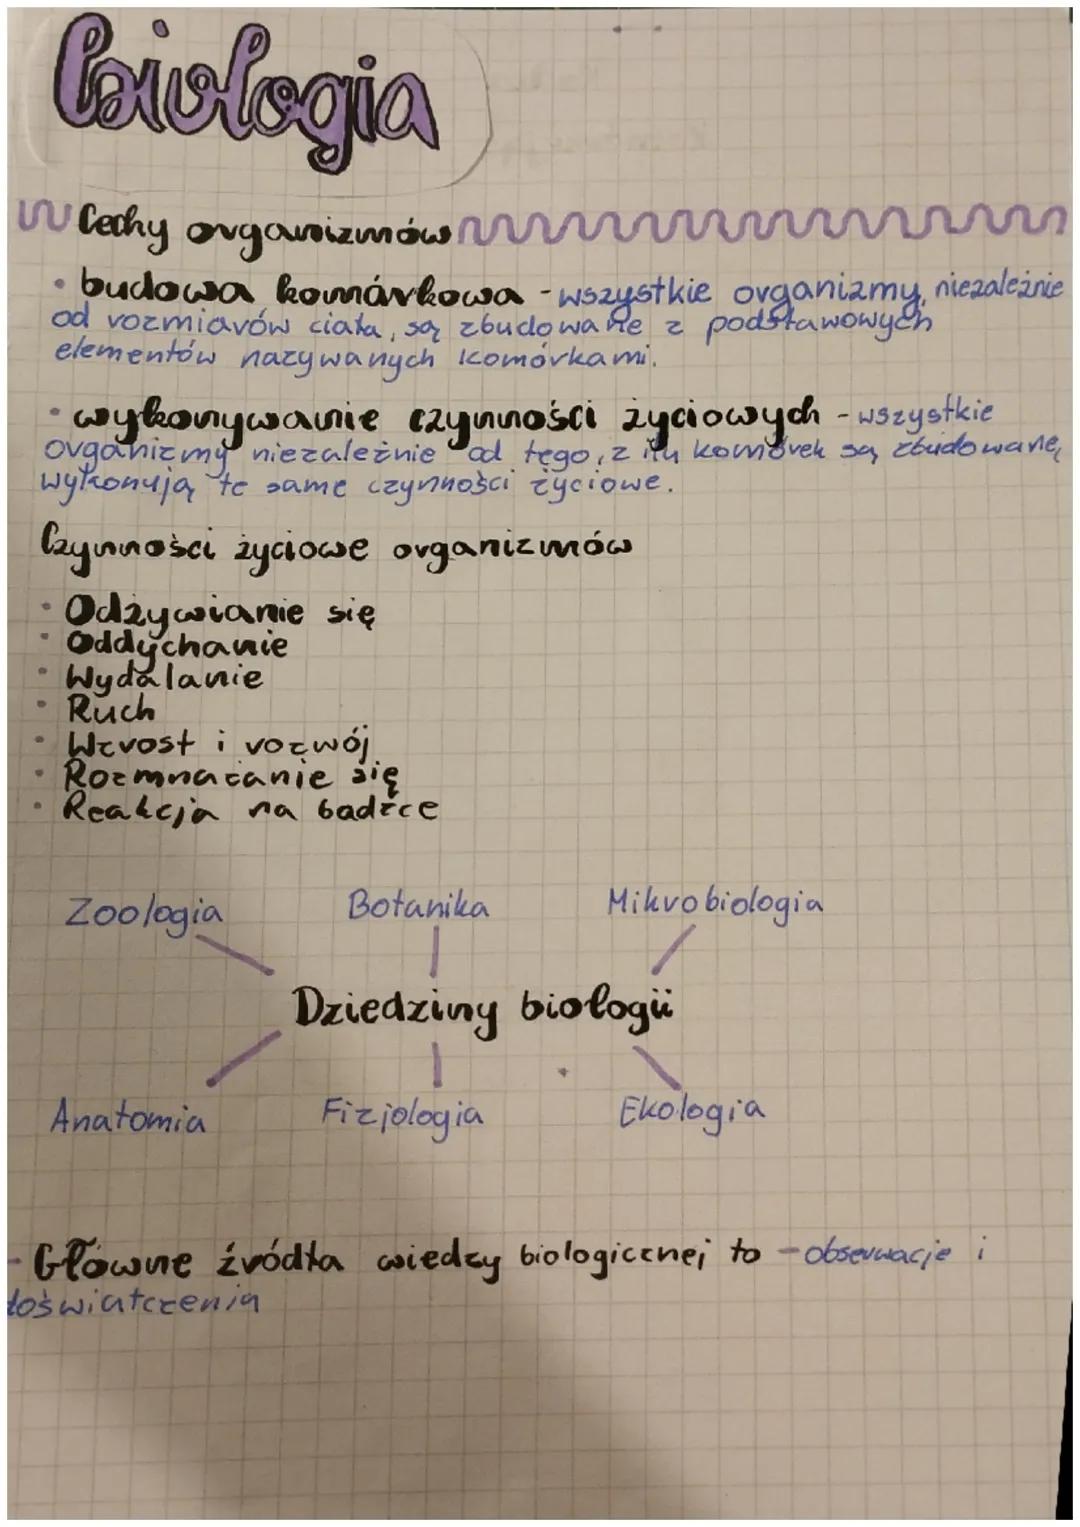 biologia
Cechy organizmów
• budowa komórkowa - wszystkie organizmy, niezależnie
od rozmiarów ciała, są zbudowane z podstawowych
elementów nazywanych komórkami.
• wykonywanie czynności życiowych - wszystkie
organizmy niezależnie od tego, z ilu komórek są zbudowane,
wykonują te same czynności życiowe.
Czynności życiowe organizmów
• Odżywianie się
• Oddychanie
• Wydalanie
• Ruch
• Wzrost i rozwój
• Rozmnażanie się
• Reakcja na badźce
Zoologia Botanika Mikrobiologia
Dziedziny biologii
Anatomia Fizjologia Ekologia
- Główne źródła wiedzy biologicznej to - obserwacje i
doświatczenia